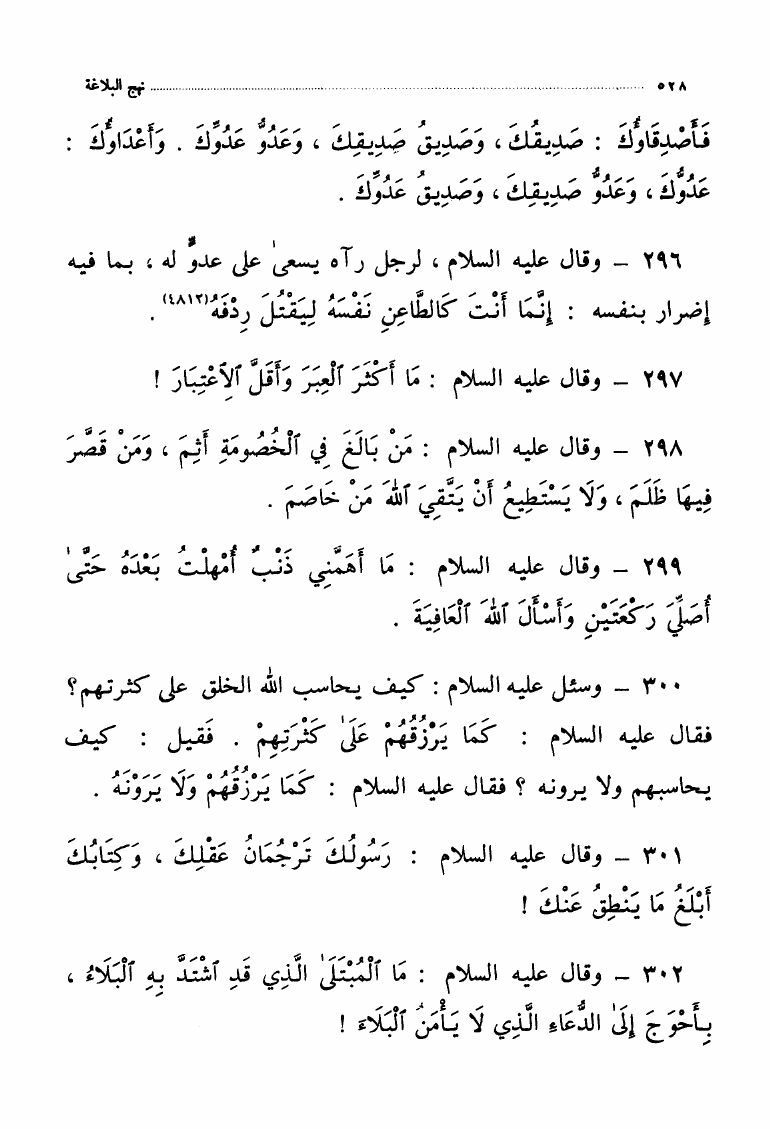 ٥٢٨ ........................................ نهج البلاغة
فَأَصْدِقَاؤُكَ : صَدِيقُكَ ، وَصَدِيقُ صَدِيقِكَ ، وَعَدُوُّ عَدُوِّكَ . وَأَعْدَاؤُكَ :
عَدُوُّكَ ، وَعَدُوُّ صَدِيقِكَ ، وَصَدِيقُ عَدُوِّكَ .
٢٩٦ – وقال عليه السلام ، لرجل رآه يسعىٰ على عدوٍّ له ، بما فيه
إضرار بنفسه : إِنَّمَا أَنْتَ كَالطَّاعِنِ نَفْسَهُ لِيَقْتُلَ رِدْفَهُ(٤٨١٢) .
٢٩٧ – وقال عليه السلام : مَا أَكْثَرَ ٱلْعِبَرَ وَأَقَلَّ ٱلِاعْتِبَارَ !
٢٩٨ – وقال عليه السلام : مَنْ بَالَغَ فِي ٱلْخُصُومَةِ أَثِمَ ، وَمَنْ قَصَّرَ
فِيهَا ظَلَمَ ، وَلَا يَسْتَطِيعُ أَنْ يَتَّقِيَ ٱللّٰهَ مَنْ خَاصَمَ .
٢٩٩ – وقال عليه السلام : مَا أَهَمَّنِي ذَنْبٌ أُمْهِلْتُ بَعْدَهُ حَتَّىٰ
أُصَلِّيَ رَكْعَتَيْنِ وَأَسْأَلَ ٱللّٰهَ ٱلْعَافِيَةَ .
٣٠٠ – وسئل عليه السلام : كيف يحاسب الله الخلق على كثرتهم؟
فقال عليه السلام : كَمَا يَرْزُقُهُمْ عَلَىٰ كَثْرَتِهِمْ . فَقيل : كيف
يحاسبهم ولا يرونه ؟ فقال عليه السلام : كَمَا يَرْزُقُهُمْ وَلَا يَرَوْنَهُ .
٣٠١ – وقال عليه السلام : رَسُولُكَ تَرْجُمَانُ عَقْلِكَ ، وَكِتَابُكَ
أَبْلَغُ مَا يَنْطِقُ عَنْكَ !
٣٠٢ – وقال عليه السلام : مَا ٱلْمُبْتَلَىٰ الَّذِي قَدِ ٱشْتَدَّ بِهِ ٱلْبَلَاءُ ،
بِأَحْوَجَ إِلَىٰ الدُّعَاءِ الَّذِي لَا يَأْمَنُ ٱلْبَلَاءَ !